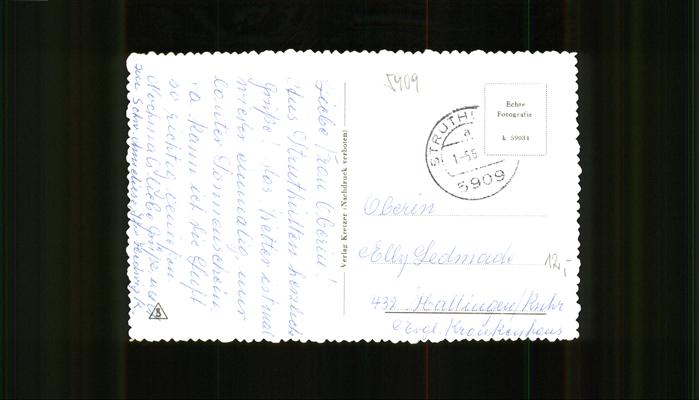 Liebe Frau Oberin!
Aus Struthütten herzliche
Grüße! Das Wetter ist mal
wieder einmalig, nur
lauter Sonnenschein.
Da kann ich die Luft
so richtig genießen.
Nochmals liebe Grüße und
Verlag Kretzer (Nachdruck verboten)
5909
STRUTH
a
1-5.5
5909
Echte
Fotografie
k 59034
Oberin
Elly Sedmade
12,-
432 Hattingen/Ruhr
Evgl. Krankenhaus
S